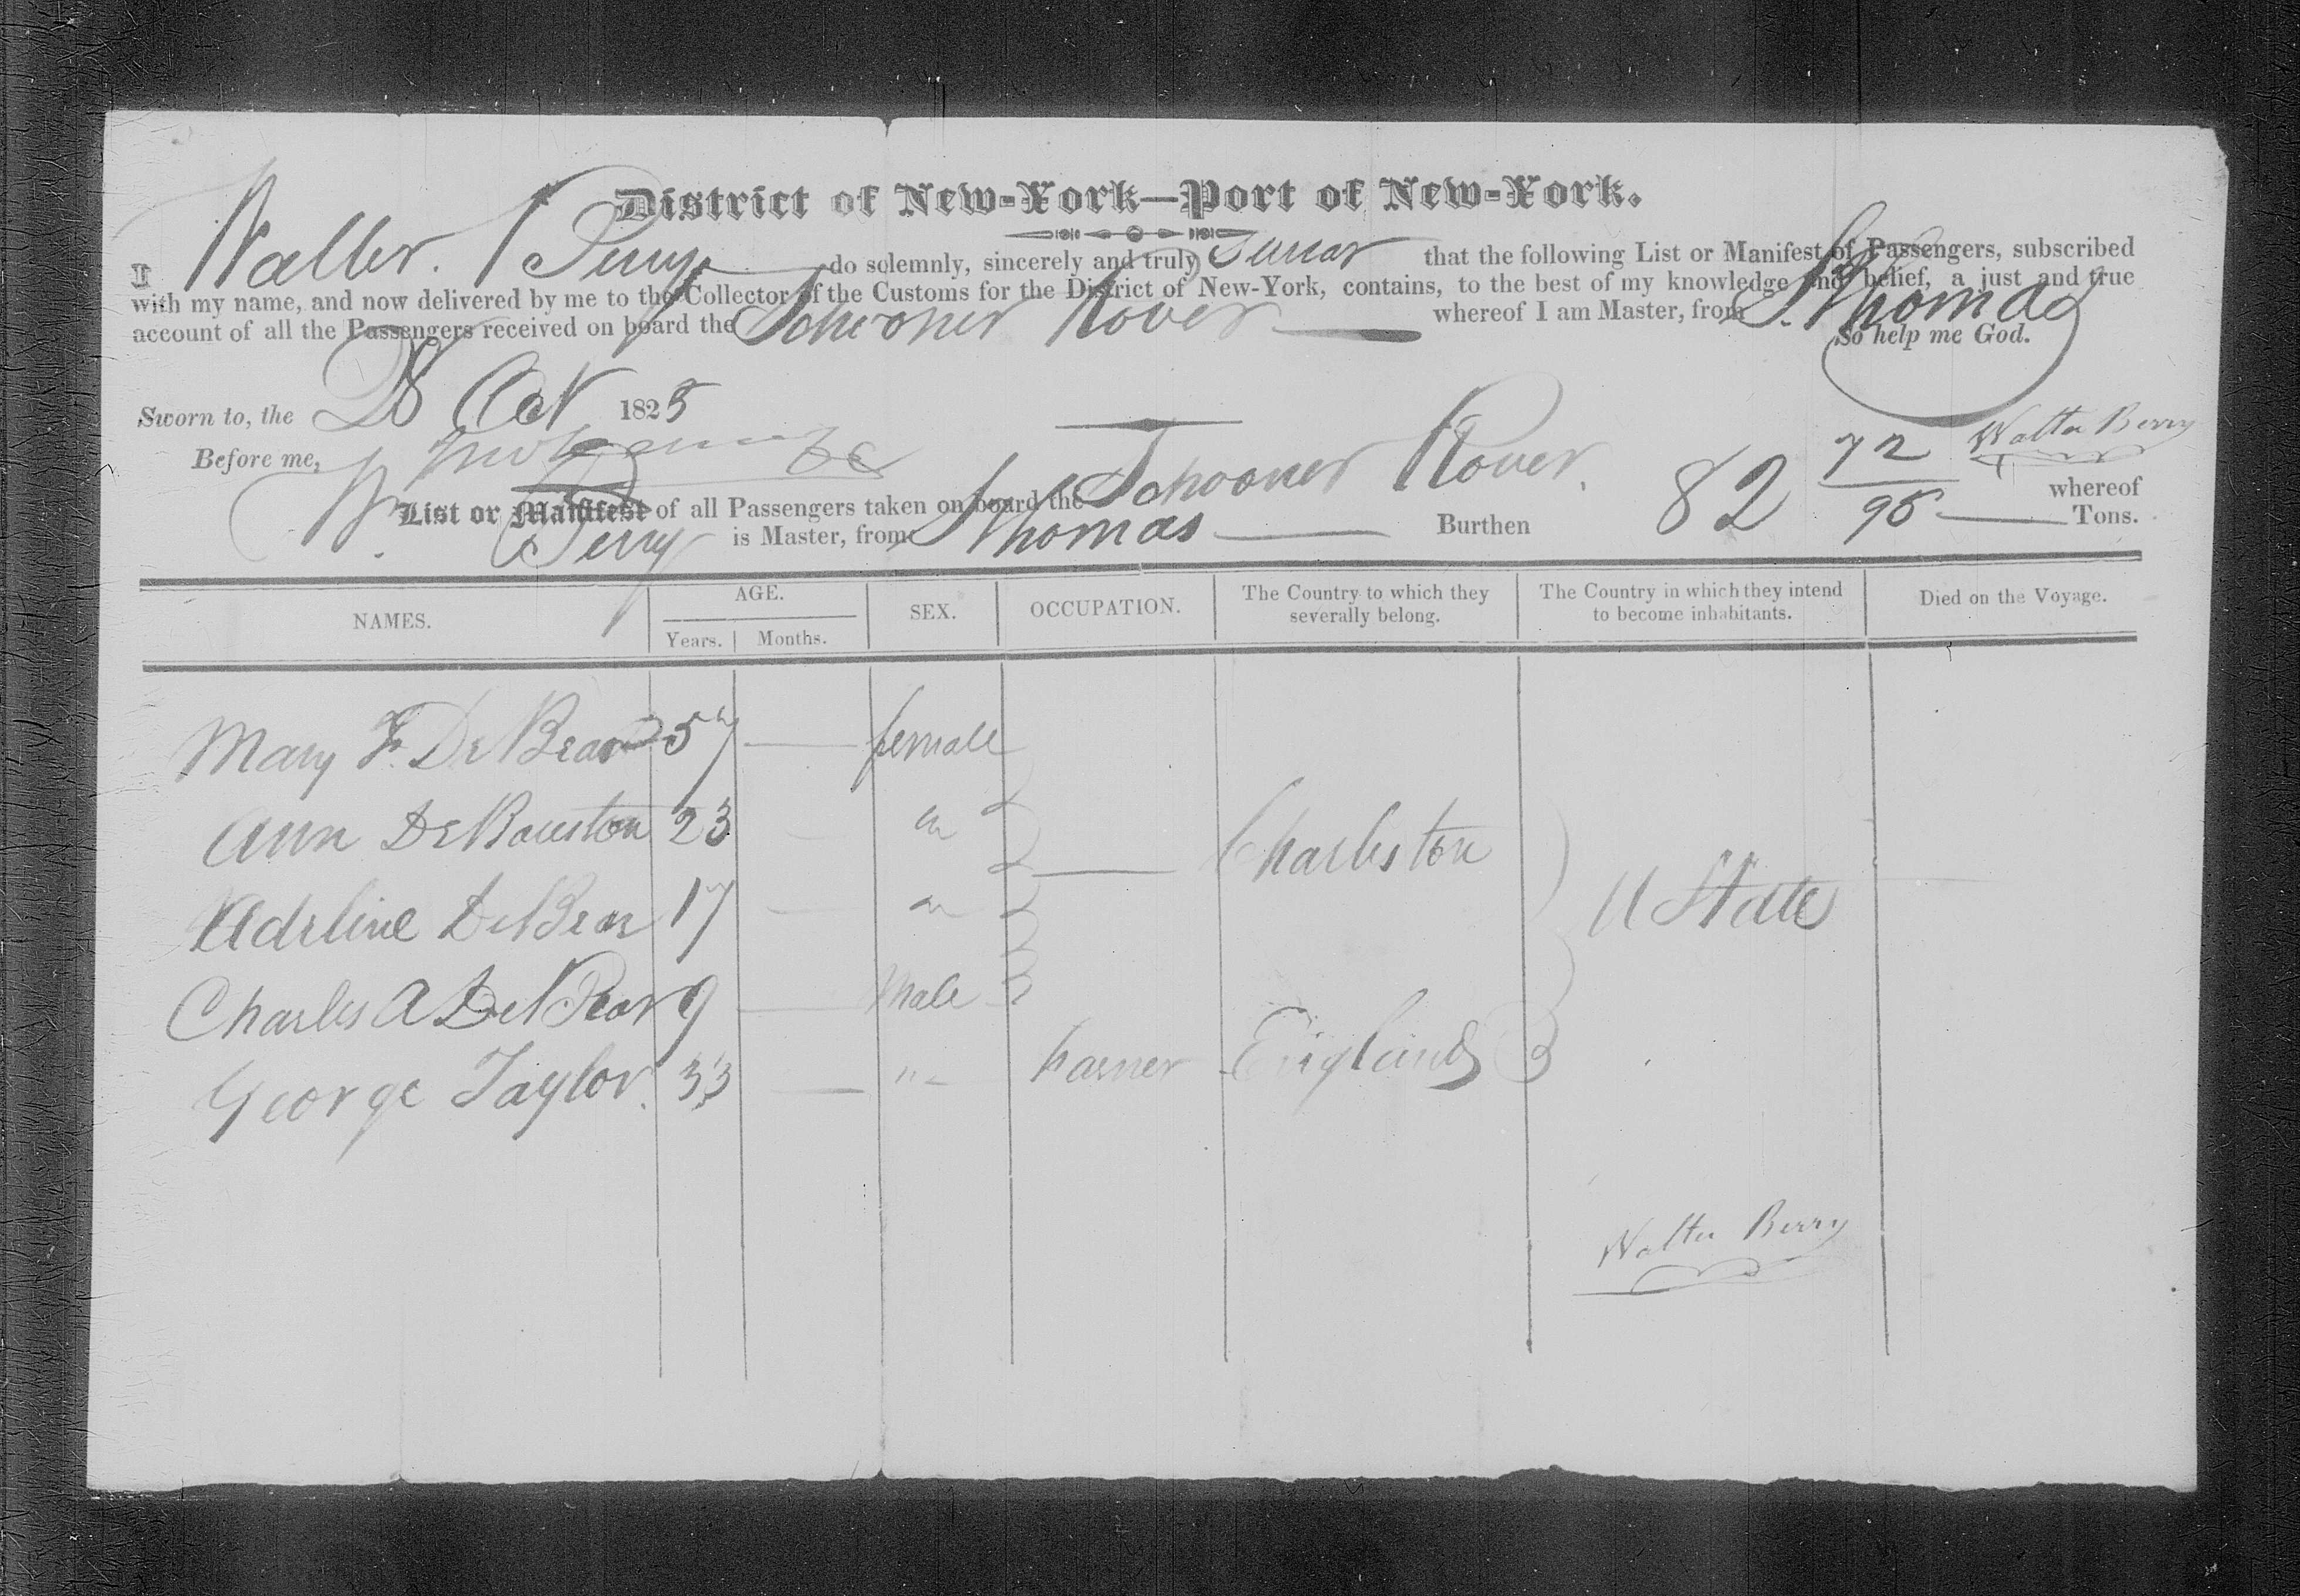 District of New-York—Port of New-York.
I Walter Perry do solemnly, sincerely and truly Swear that the following List or Manifest of Passengers, subscribed
with my name, and now delivered by me to the Collector of the Customs for the District of New-York, contains, to the best of my knowledge and belief, a just and true
account of all the Passengers received on board the Schooner Rover whereof I am Master, from St Thomas
So help me God.
Sworn to, the 28 Oct 1825
Before me, Walter Berry
List or Manifest of all Passengers taken on board the Schooner Rover. whereof
W. Perry is Master, from St Thomas Burthen 82 72/95 Tons.
NAMES. AGE. SEX. OCCUPATION. The Country to which they severally belong. The Country in which they intend to become inhabitants. Died on the Voyage.
Years. Months.
Mary F. De Bear 57 — female
Ann 23 — "
Adeline De Bear 17 — " — Charleston U States
Charles A De Bear 9 — Male
George Taylor. 33 — " farmer England
Walter Berry